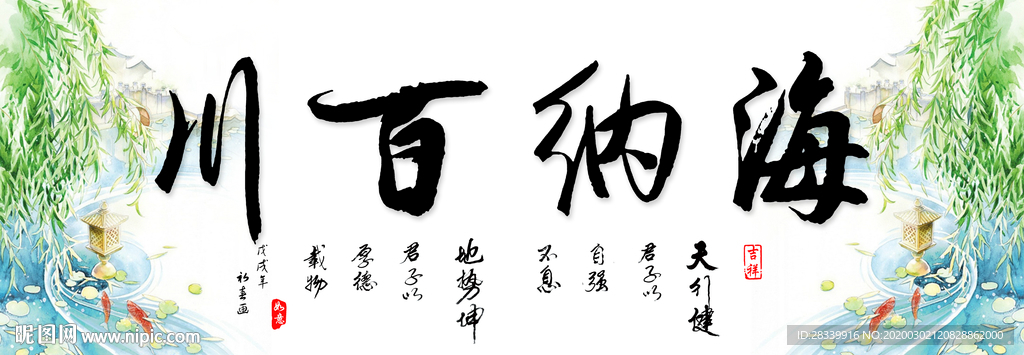 海纳百川
吉祥
天行健
君子以
自强
不息
地势坤
君子以
厚德
载物
戊戌年
初春画
如意
昵图网 www.nipic.com
ID:28339916 NO:20200302120828862000